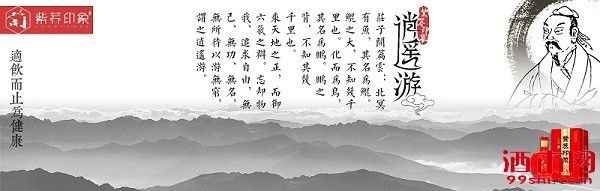 紫荞印象
適飲而止為健康
逍遥游
莊子開篇雲：北冥
有魚，其名為鯤。
鯤之大，不知幾千
里也。化而為鳥，
其名為鵬。鵬之
背，不知其幾
千里也。
乘天地之正，而御
六氣之辯，忘卻物
我、追求自由，無
己、無功、無名，
無所待以游無窮，
謂之逍遥游。